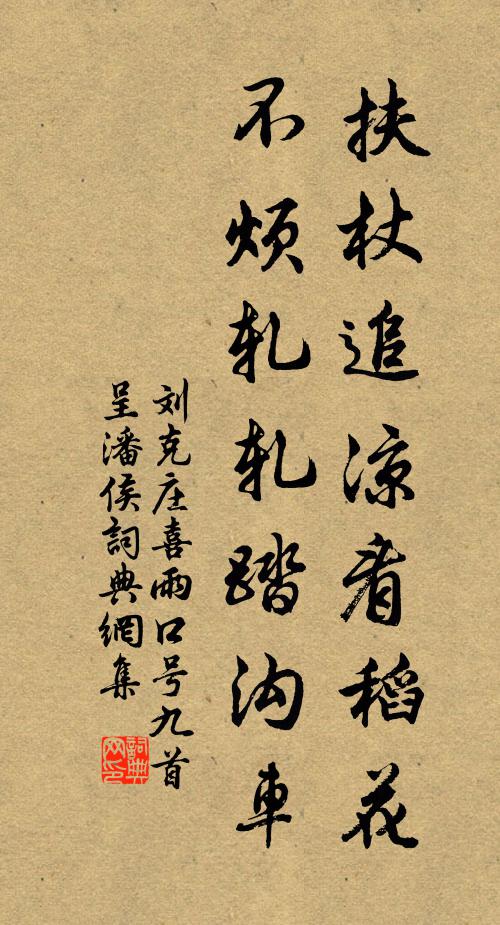 扶杖追凉看稻花
不烦轧轧踏沟車
刘克庄喜雨口号九首
呈潘侯詞典網集
詞典网印